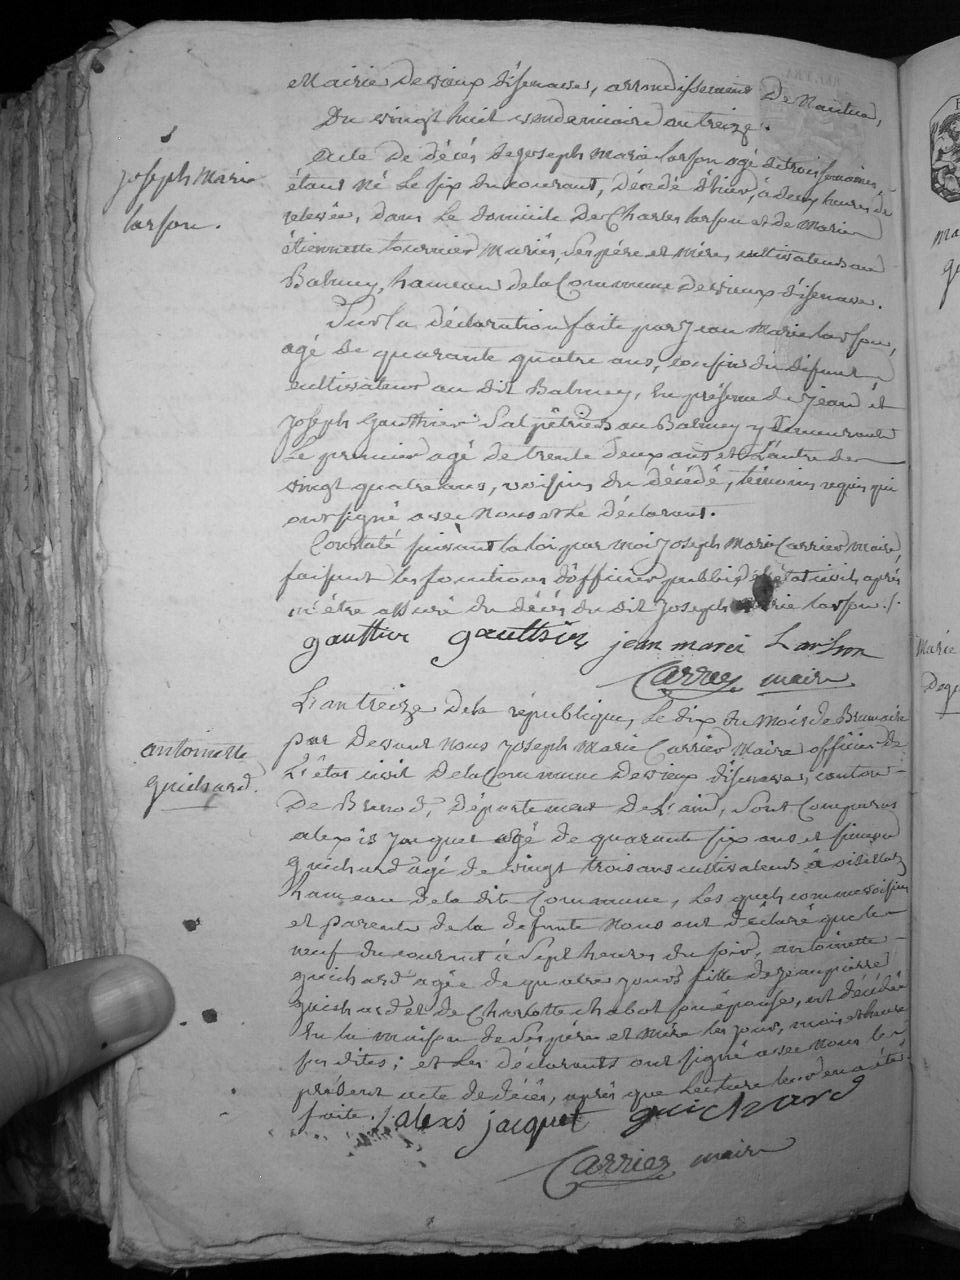 Mairie de vieux d'isenave, arrondissement De Nantua,
Du vingt huit vendemiaire an treize.
joseph marie
larson.
Acte De décés de joseph marie larson agé de trois semaines,
étant né Le six du courant, décédé d'hier, à deux heures de
relevée, dans Le domicile De Charles larson et de Marie
étiennette tournier Mariés, Ses pére et mére, cultivateurs au
Balmey, hameau de la Commune de vieux d'isenave.
Sur la déclaration faite par Jean Marie larson,
agé de quarante quatre ans, cousin du défunt
cultivateur au dit Balmey, En présence de Jean et
Joseph Gauthier Salpêtriers au Balmey y Demeurants
Le premier agé de trente deux ans et L'autre de
vingt quatre ans, voisins du décédé, témoins requis qui
ont signé avec Nous et Le déclarant.
Constaté suivant la loi par moi Joseph Marie Carrier maire,
faisant les fonctions d'officier public de l'état civil, après
m'être assuré du décés du dit Joseph marie larson ./.
gauthier gauthier jean marie Larson
Carrier maire
antoinette
guichard.
L'an treize de la république, Le dix du mois de Brumaire
par Devant nous Joseph Marie Carrier Maire officier de
L'état civil De la Commune de vieux d'isenave, canton
De Brenod, Département de L'ain, Sont Comparus
alexis Jacquet agé de quarante six ans et simeon
guichard agé de vingt trois ans cultivateurs à
hameau de la dite Commune, Les quels comme voisins
et parents de la défunte Nous ont déclaré que le
neuf du courant à Sept heures du soir, antoinette
guichard agée de quatre jours fille de jean pierre
guichard et de Charlotte chabot son épouse, est décédée
En la maison de Ses pére et mére les jour, mois et heure
sus dites; et Les déclarants ont signé avec Nous le
présent acte de décés, après que Lecture leur en a été
faite ./. alexis jacquet guichard
Carrier maire